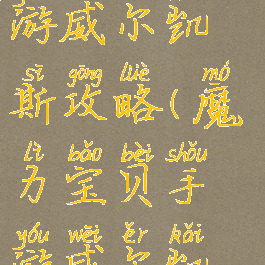 游威尔凯
sī gōng lüè mó
斯攻略(魔
lì bǎo bèi shǒu
力宝贝手
yóu wēi ěr kǎi
游威尔凯